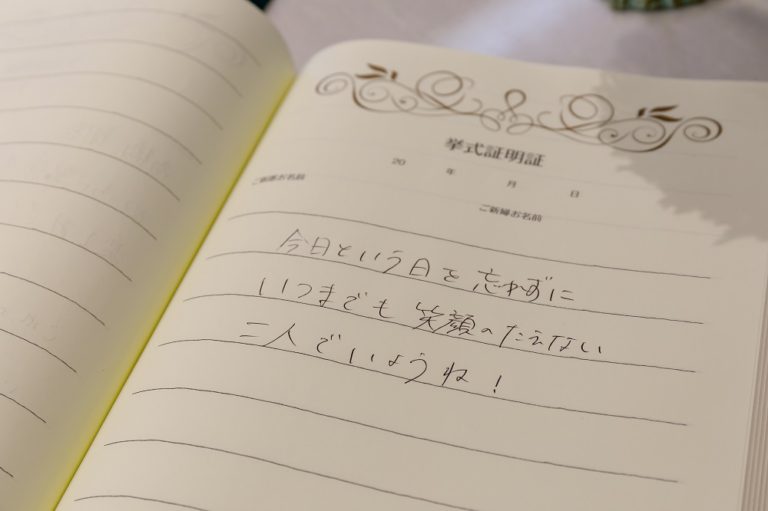 挙式証明証
20 年 月 日
ご新郎お名前
ご新婦お名前
今日という日を忘れずに
いつまでも笑顔のたえない
二人でいようね!